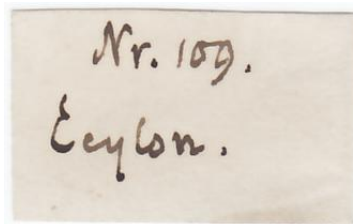 Nr. 109.
Ceylon.